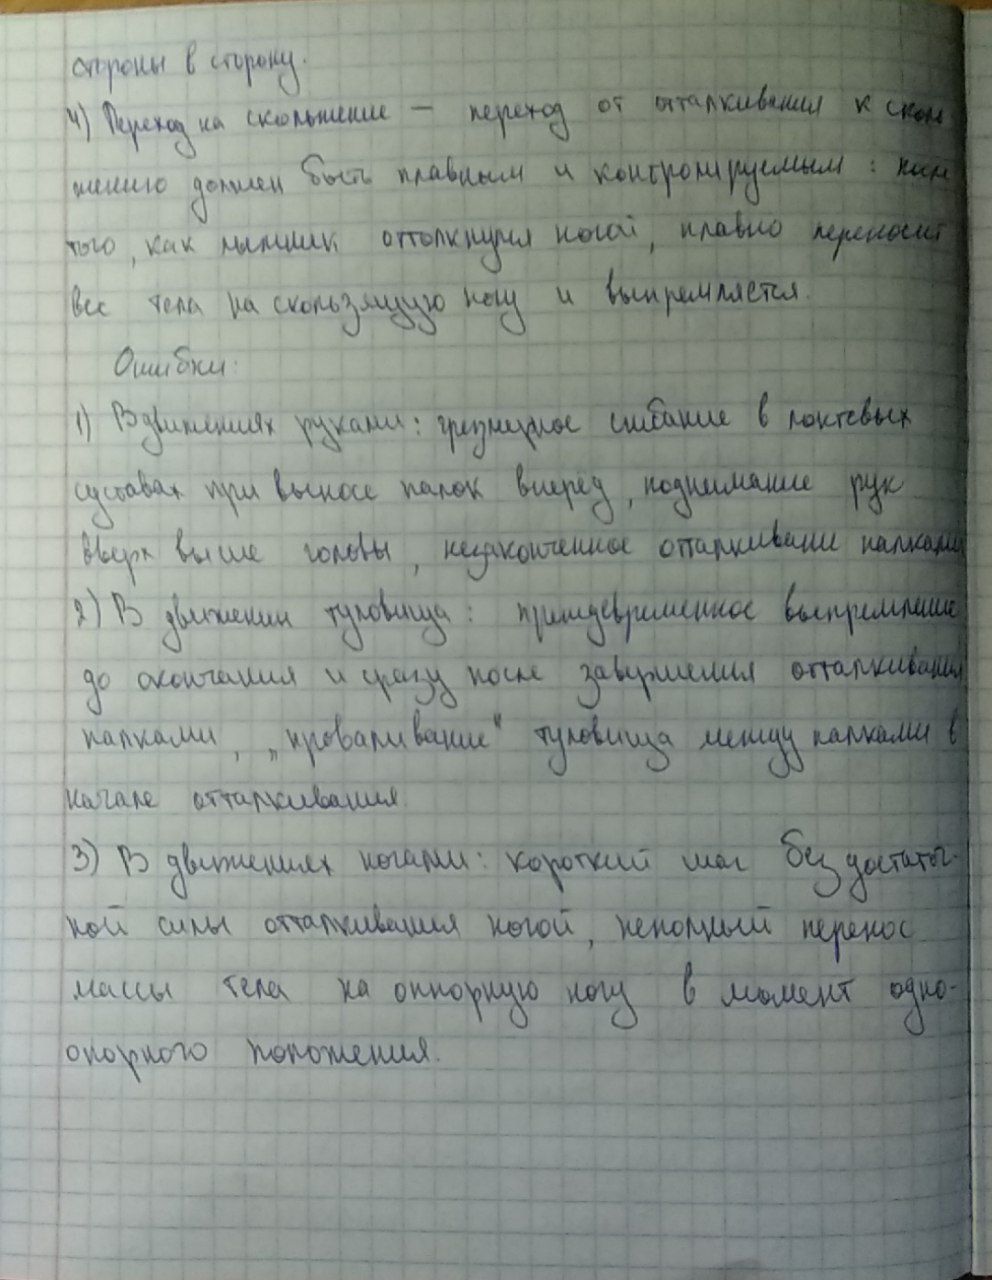 стороны в сторону.
4) Переход на скольжение — переход от отталкивания к сколь
жению должен быть плавным и контролируемым: после
того, как лыжник оттолкнулся ногой, плавно переносит
вес тела на скользящую ногу и выпрямляется.
Ошибки:
1) В движениях руками: чрезмерное сгибание в локтевых
суставах при выносе палок вперед, поднимание рук
вверх выше головы, незаконченное отталкивание палками
2) В движении туловища: преждевременное выпрямление
до окончания и сразу после завершения отталкивания
палками, „проваливание" туловища между палками в
начале отталкивания.
3) В движениях ногами: короткий шаг без достаточ-
ной силы отталкивания ногой, неполный перенос
массы тела на оппорную ногу в момент одно-
опорного положения.